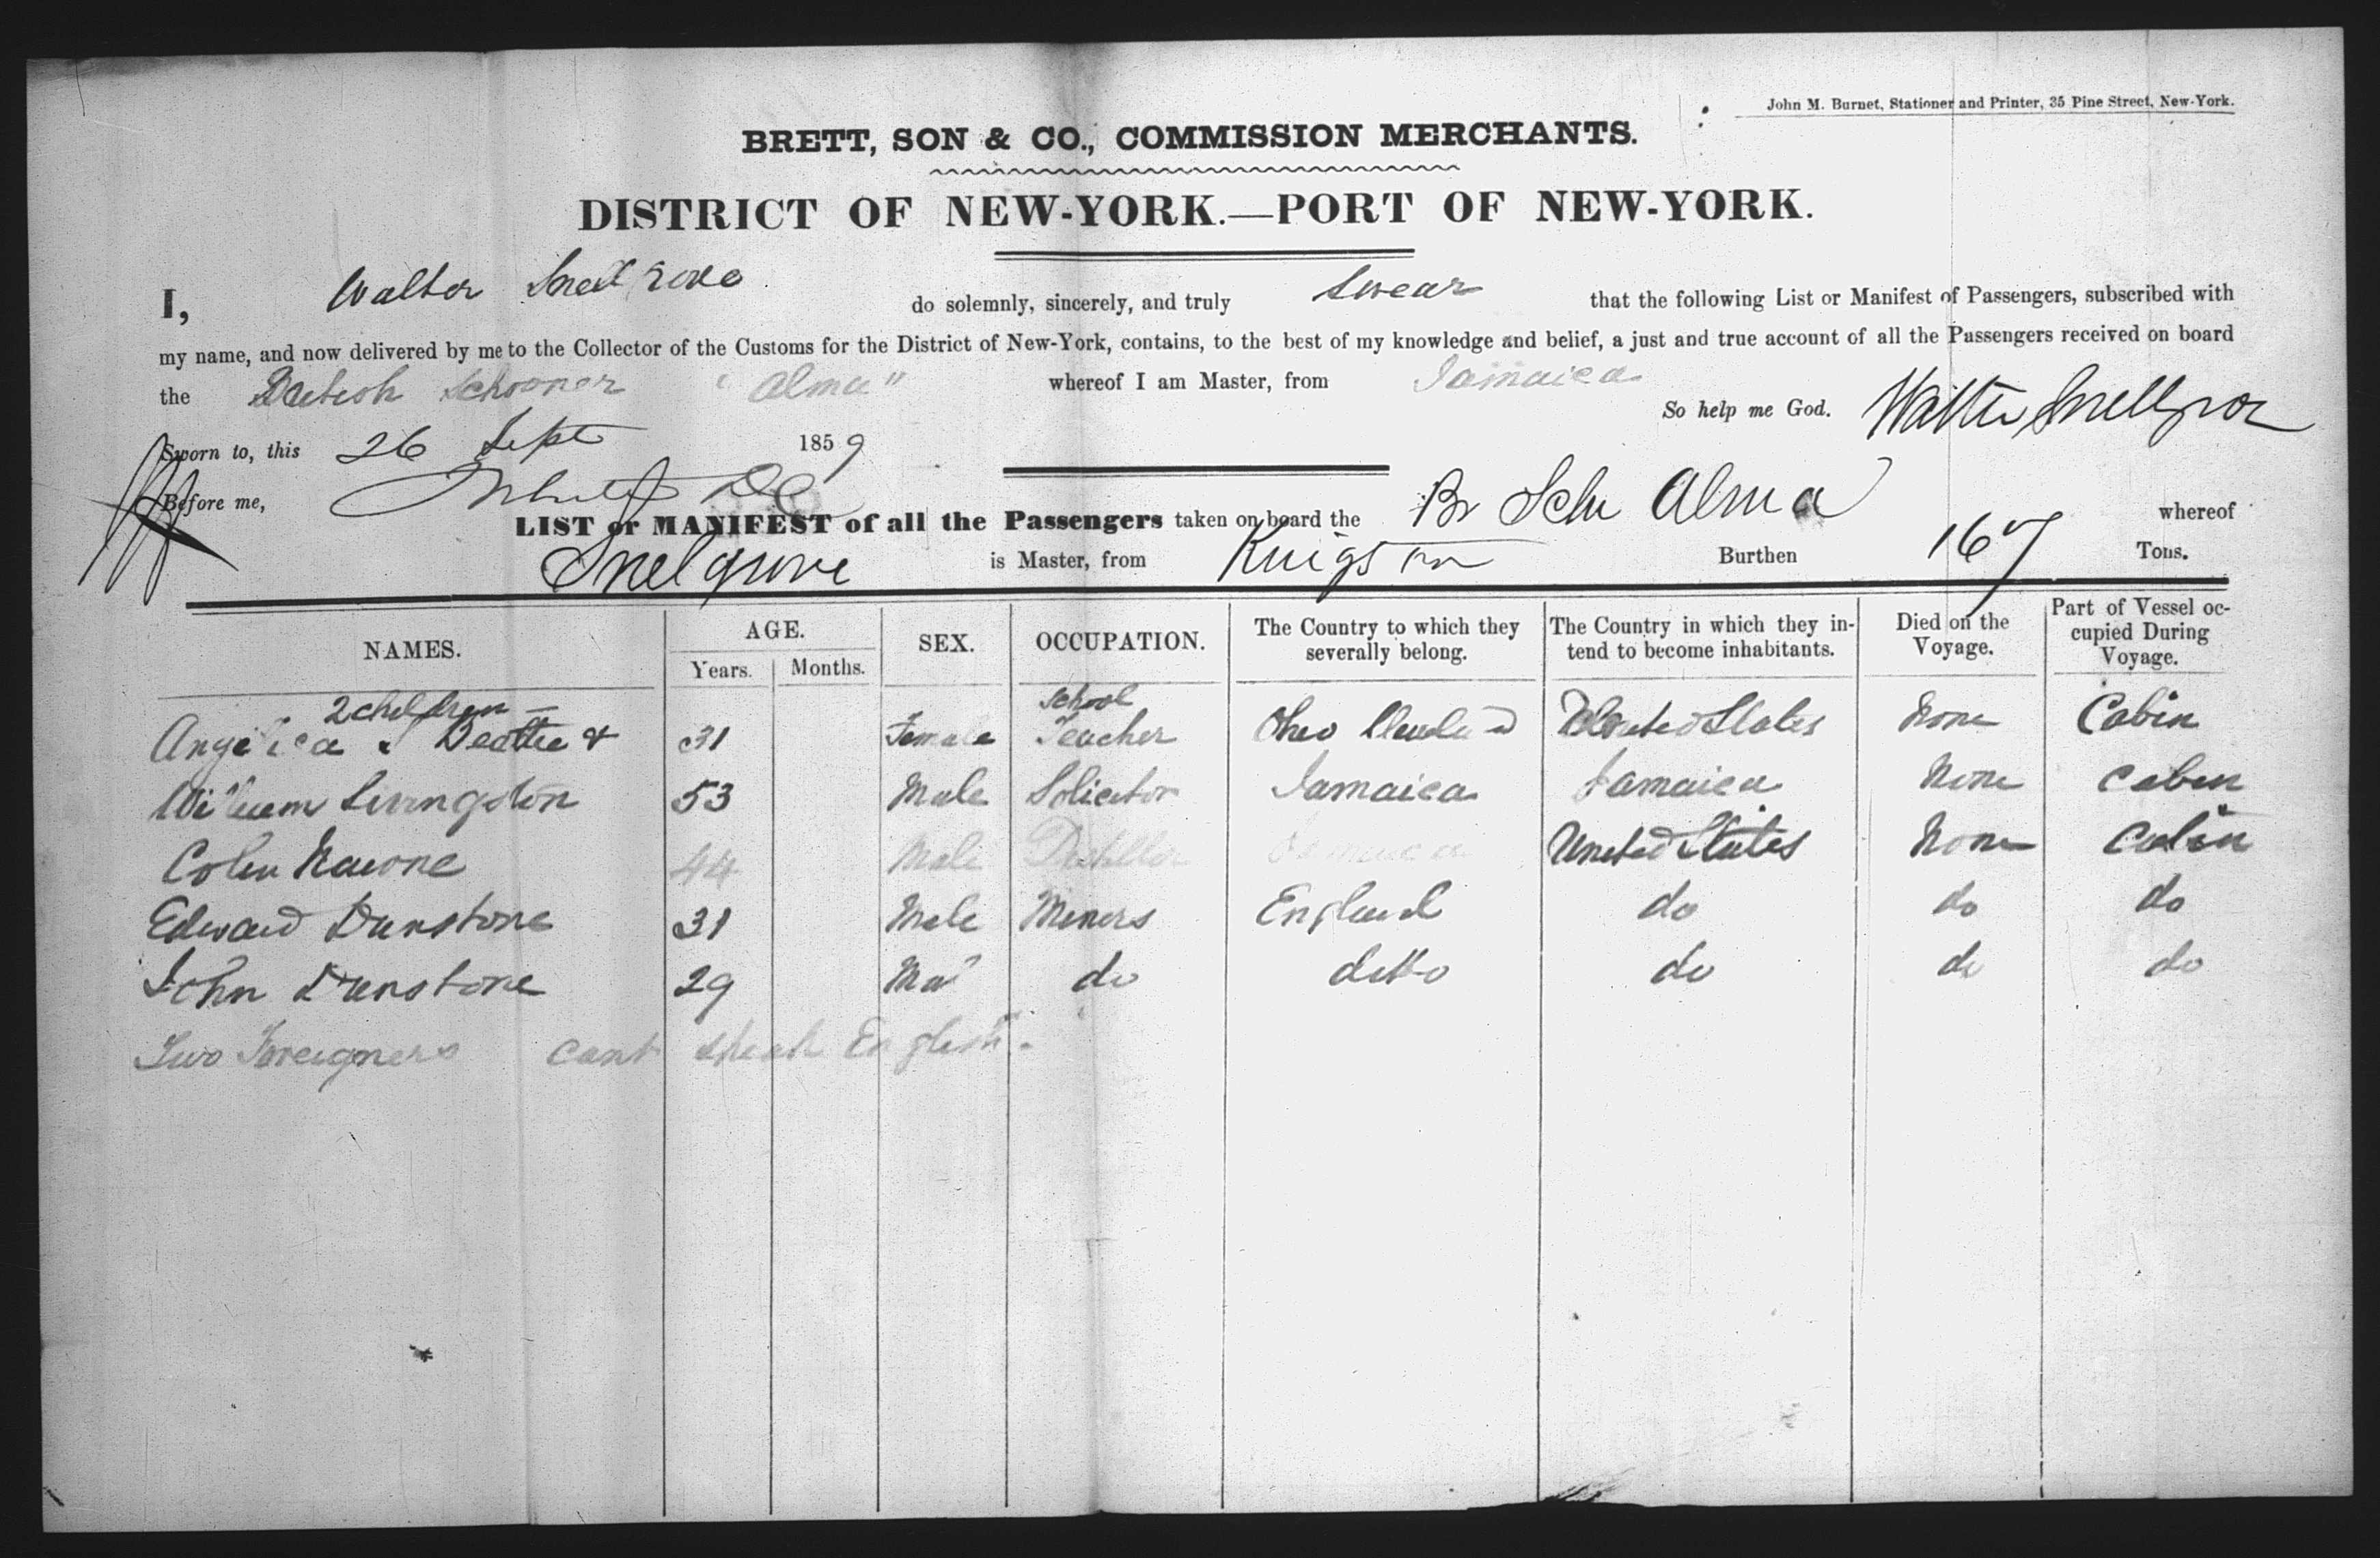 John M. Burnet, Stationer and Printer, 35 Pine Street, New-York.
BRETT, SON & CO., COMMISSION MERCHANTS.
DISTRICT OF NEW-YORK.—PORT OF NEW-YORK.
I, Walter Snellgrove do solemnly, sincerely, and truly swear that the following List or Manifest of Passengers, subscribed with
my name, and now delivered by me to the Collector of the Customs for the District of New-York, contains, to the best of my knowledge and belief, a just and true account of all the Passengers received on board
the British Schooner "Alma" whereof I am Master, from Jamaica
So help me God. Walter Snellgrove
Sworn to, this 26 Sept 1859
Before me,
LIST or MANIFEST of all the Passengers taken on board the Br Schr Alma whereof
Snelgrove is Master, from Kingston Burthen 167 Tons.
NAMES. AGE. Years. Months. SEX. OCCUPATION. The Country to which they severally belong. The Country in which they intend to become inhabitants. Died on the Voyage. Part of Vessel occupied During Voyage.
2 children – School
Angelica Beattie & 31 Female Teacher Ohio Cleveland United States None Cabin
William Livingston 53 Male Solicitor Jamaica Jamaica None Cabin
Colin 44 Male Distiller Jamaica United States None Cabin
Edward Dunstone 31 Male Miners England do do do
John Dunstone 29 Mal do ditto do do do
Two Foreigners cant speak English.